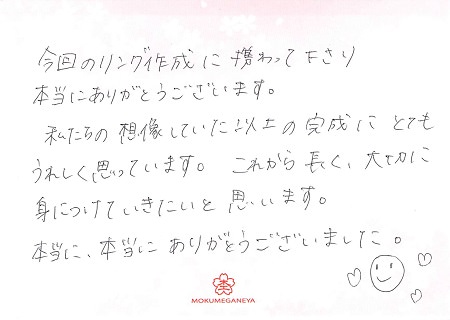 今回のリング作成に携わって下さり
本当にありがとうございます。
私たちの想像していた以上の完成にとても
うれしく思っています。これから長く、大切に
身につけていきたいと思います。
本当に、本当にありがとうございました。
MOKUMEGANEYA